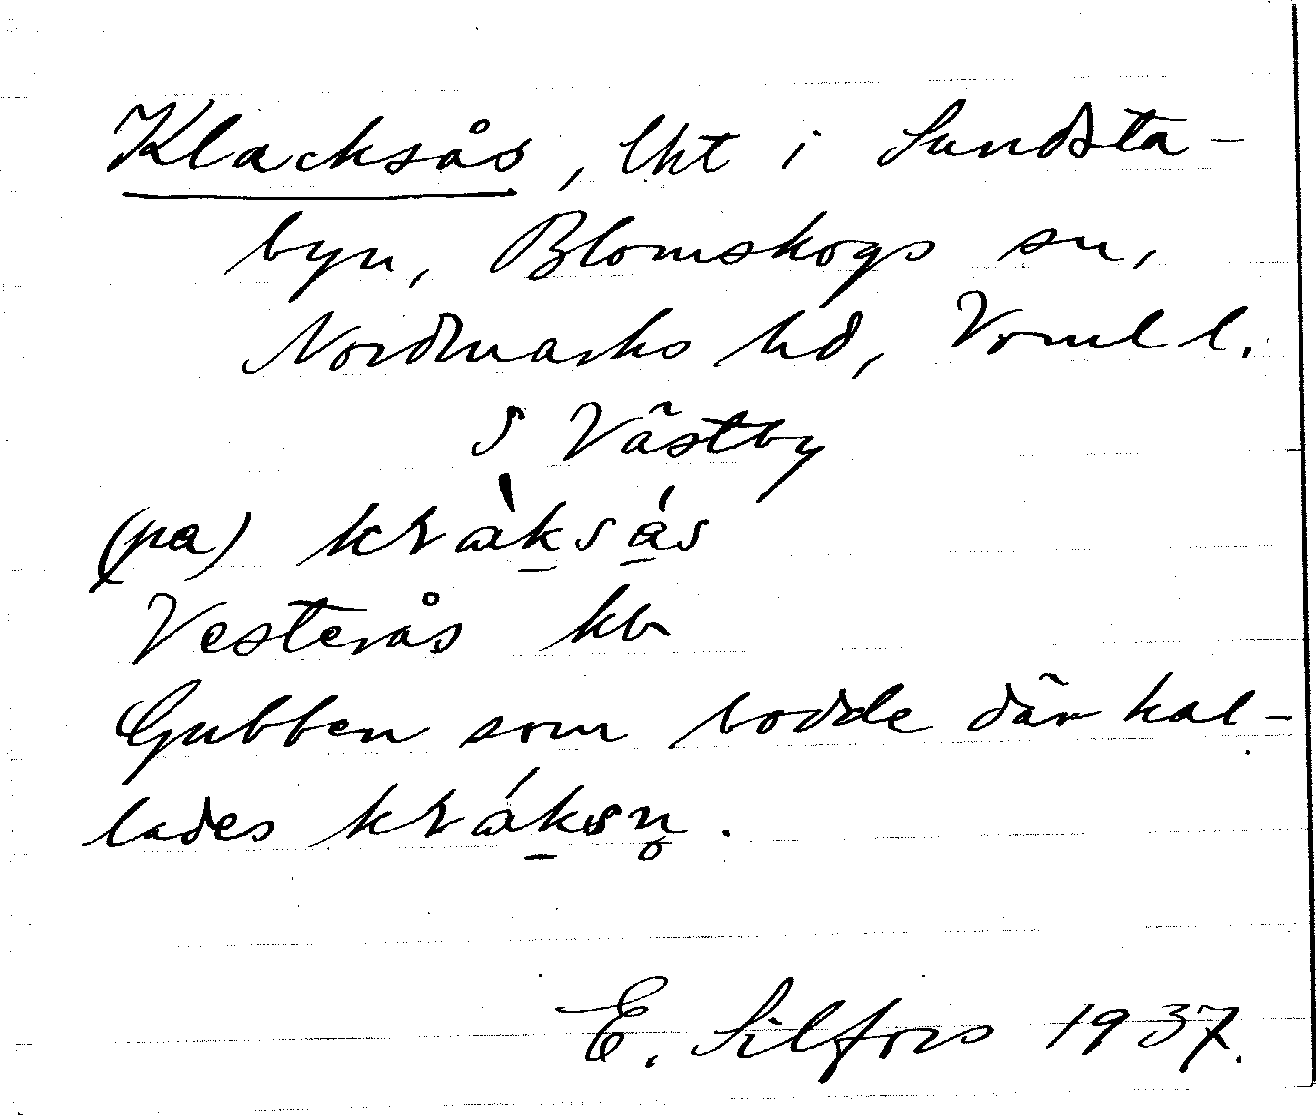 Klacksås, lht i Sundsta-
byn, Blomskogs sn,
Nordmarks hd, Vrml l.
S Västby
(pa) kràksás
Vesterås kb
Gubben som bodde där kal-
lades kráksn̥.
E. Silfors 1937.